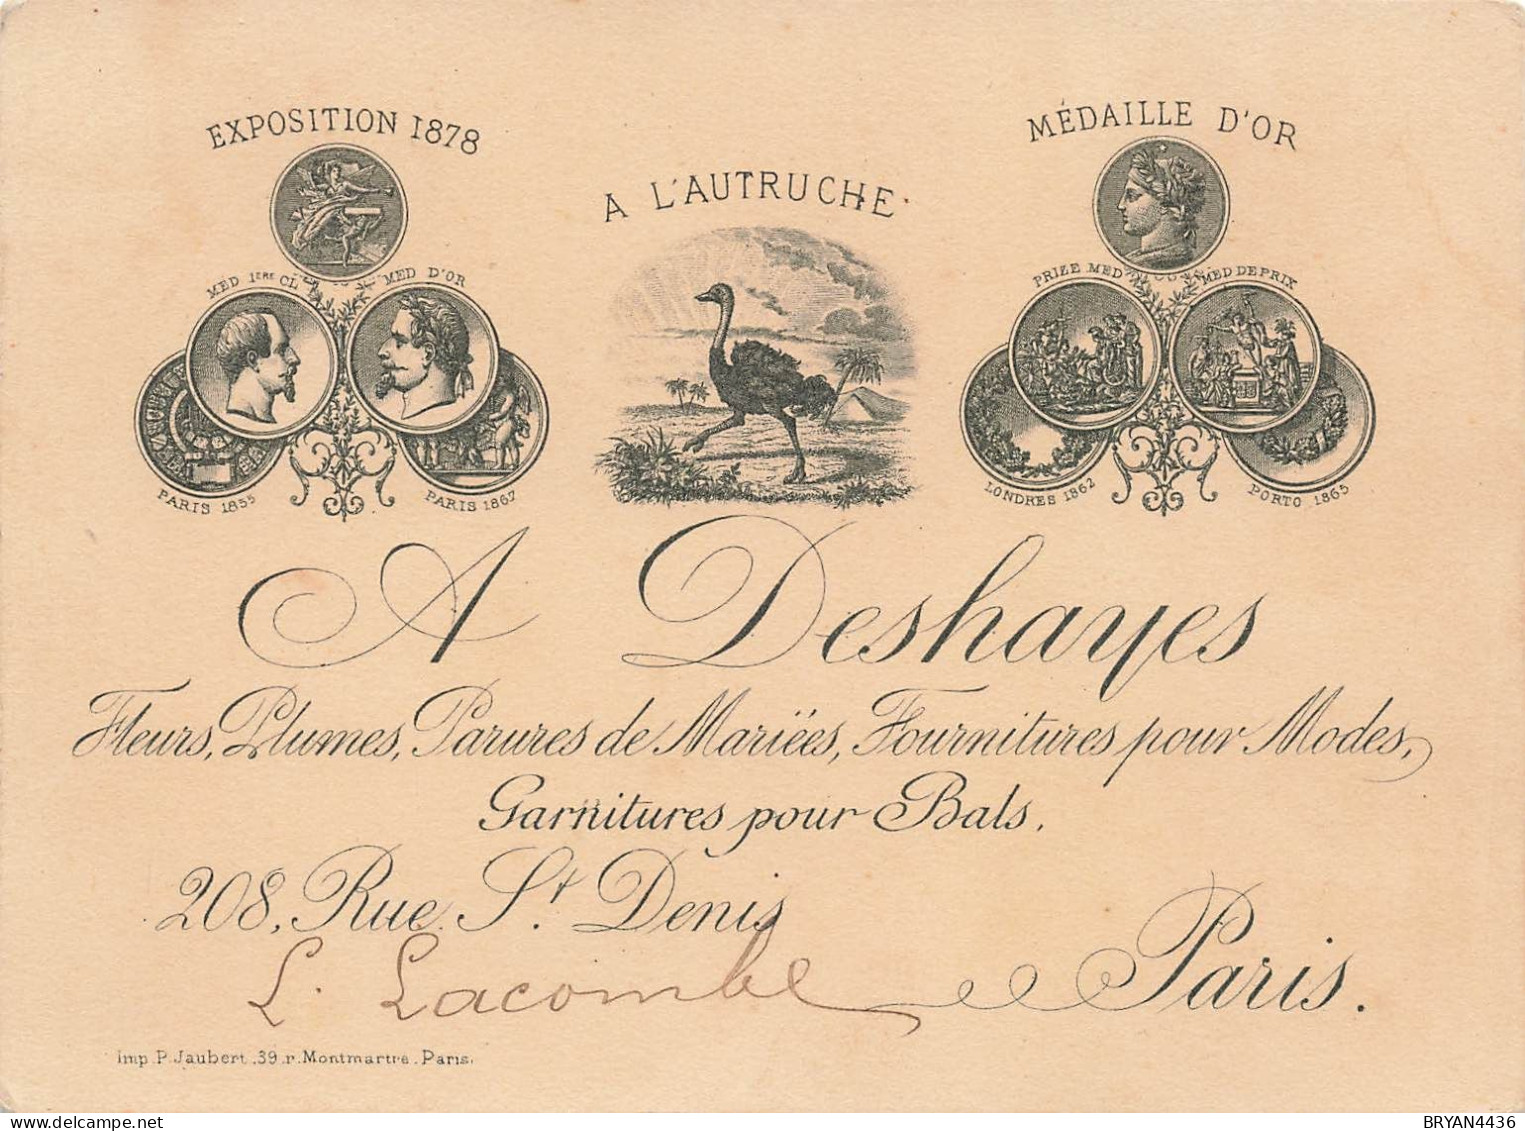 EXPOSITION 1878
MÉDAILLE D'OR
A L'AUTRUCHE
MED 1ERE CL
MED D'OR
PRIZE MED
MED DE PRIX
PARIS 1855
PARIS 1867
LONDRES 1862
PORTO 1865
A Deshayes
Fleurs, Plumes, Parures de Mariées, Fournitures pour Modes,
Garnitures pour Bals.
208, Rue St Denis
Paris.
L. Lacombe
Imp. P. Jaubert. 39. r. Montmartre. Paris.
BRYAN4436